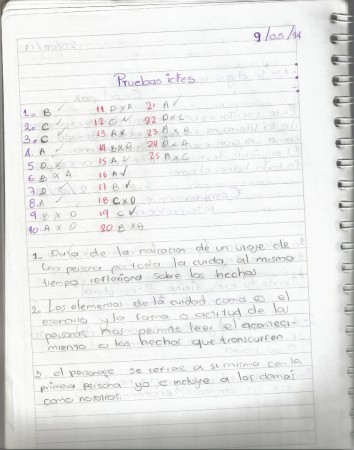 9/05/14
Pruebas icfes
1. B ✓ 11 D X A 21 A ✓
2. C ✓ 12 C 22 D X C
3. C ✓ 13 A 23 B
4. A 14 B X A 24 D X A
5. D 15 A 25 B X C
6. B X A 16 A ✓
7. D 17 B ✓
8. A ✓ 18 C X D
9. B X D 19 C ✓
10. A X D 20 B X A
1. de la narración de un viaje de
una persona la ciudad al mismo
tiempo reflexiona sobre los hechos
2. Los elementos de la ciudad como es el
esenario y la forma o actitud de las
personas nos permite leer el acontesi-
miento o los hechos que transcurren
3. el personaje se refiere a si mismo con la
primera persona ya e incluye a los demas
como nosotros.